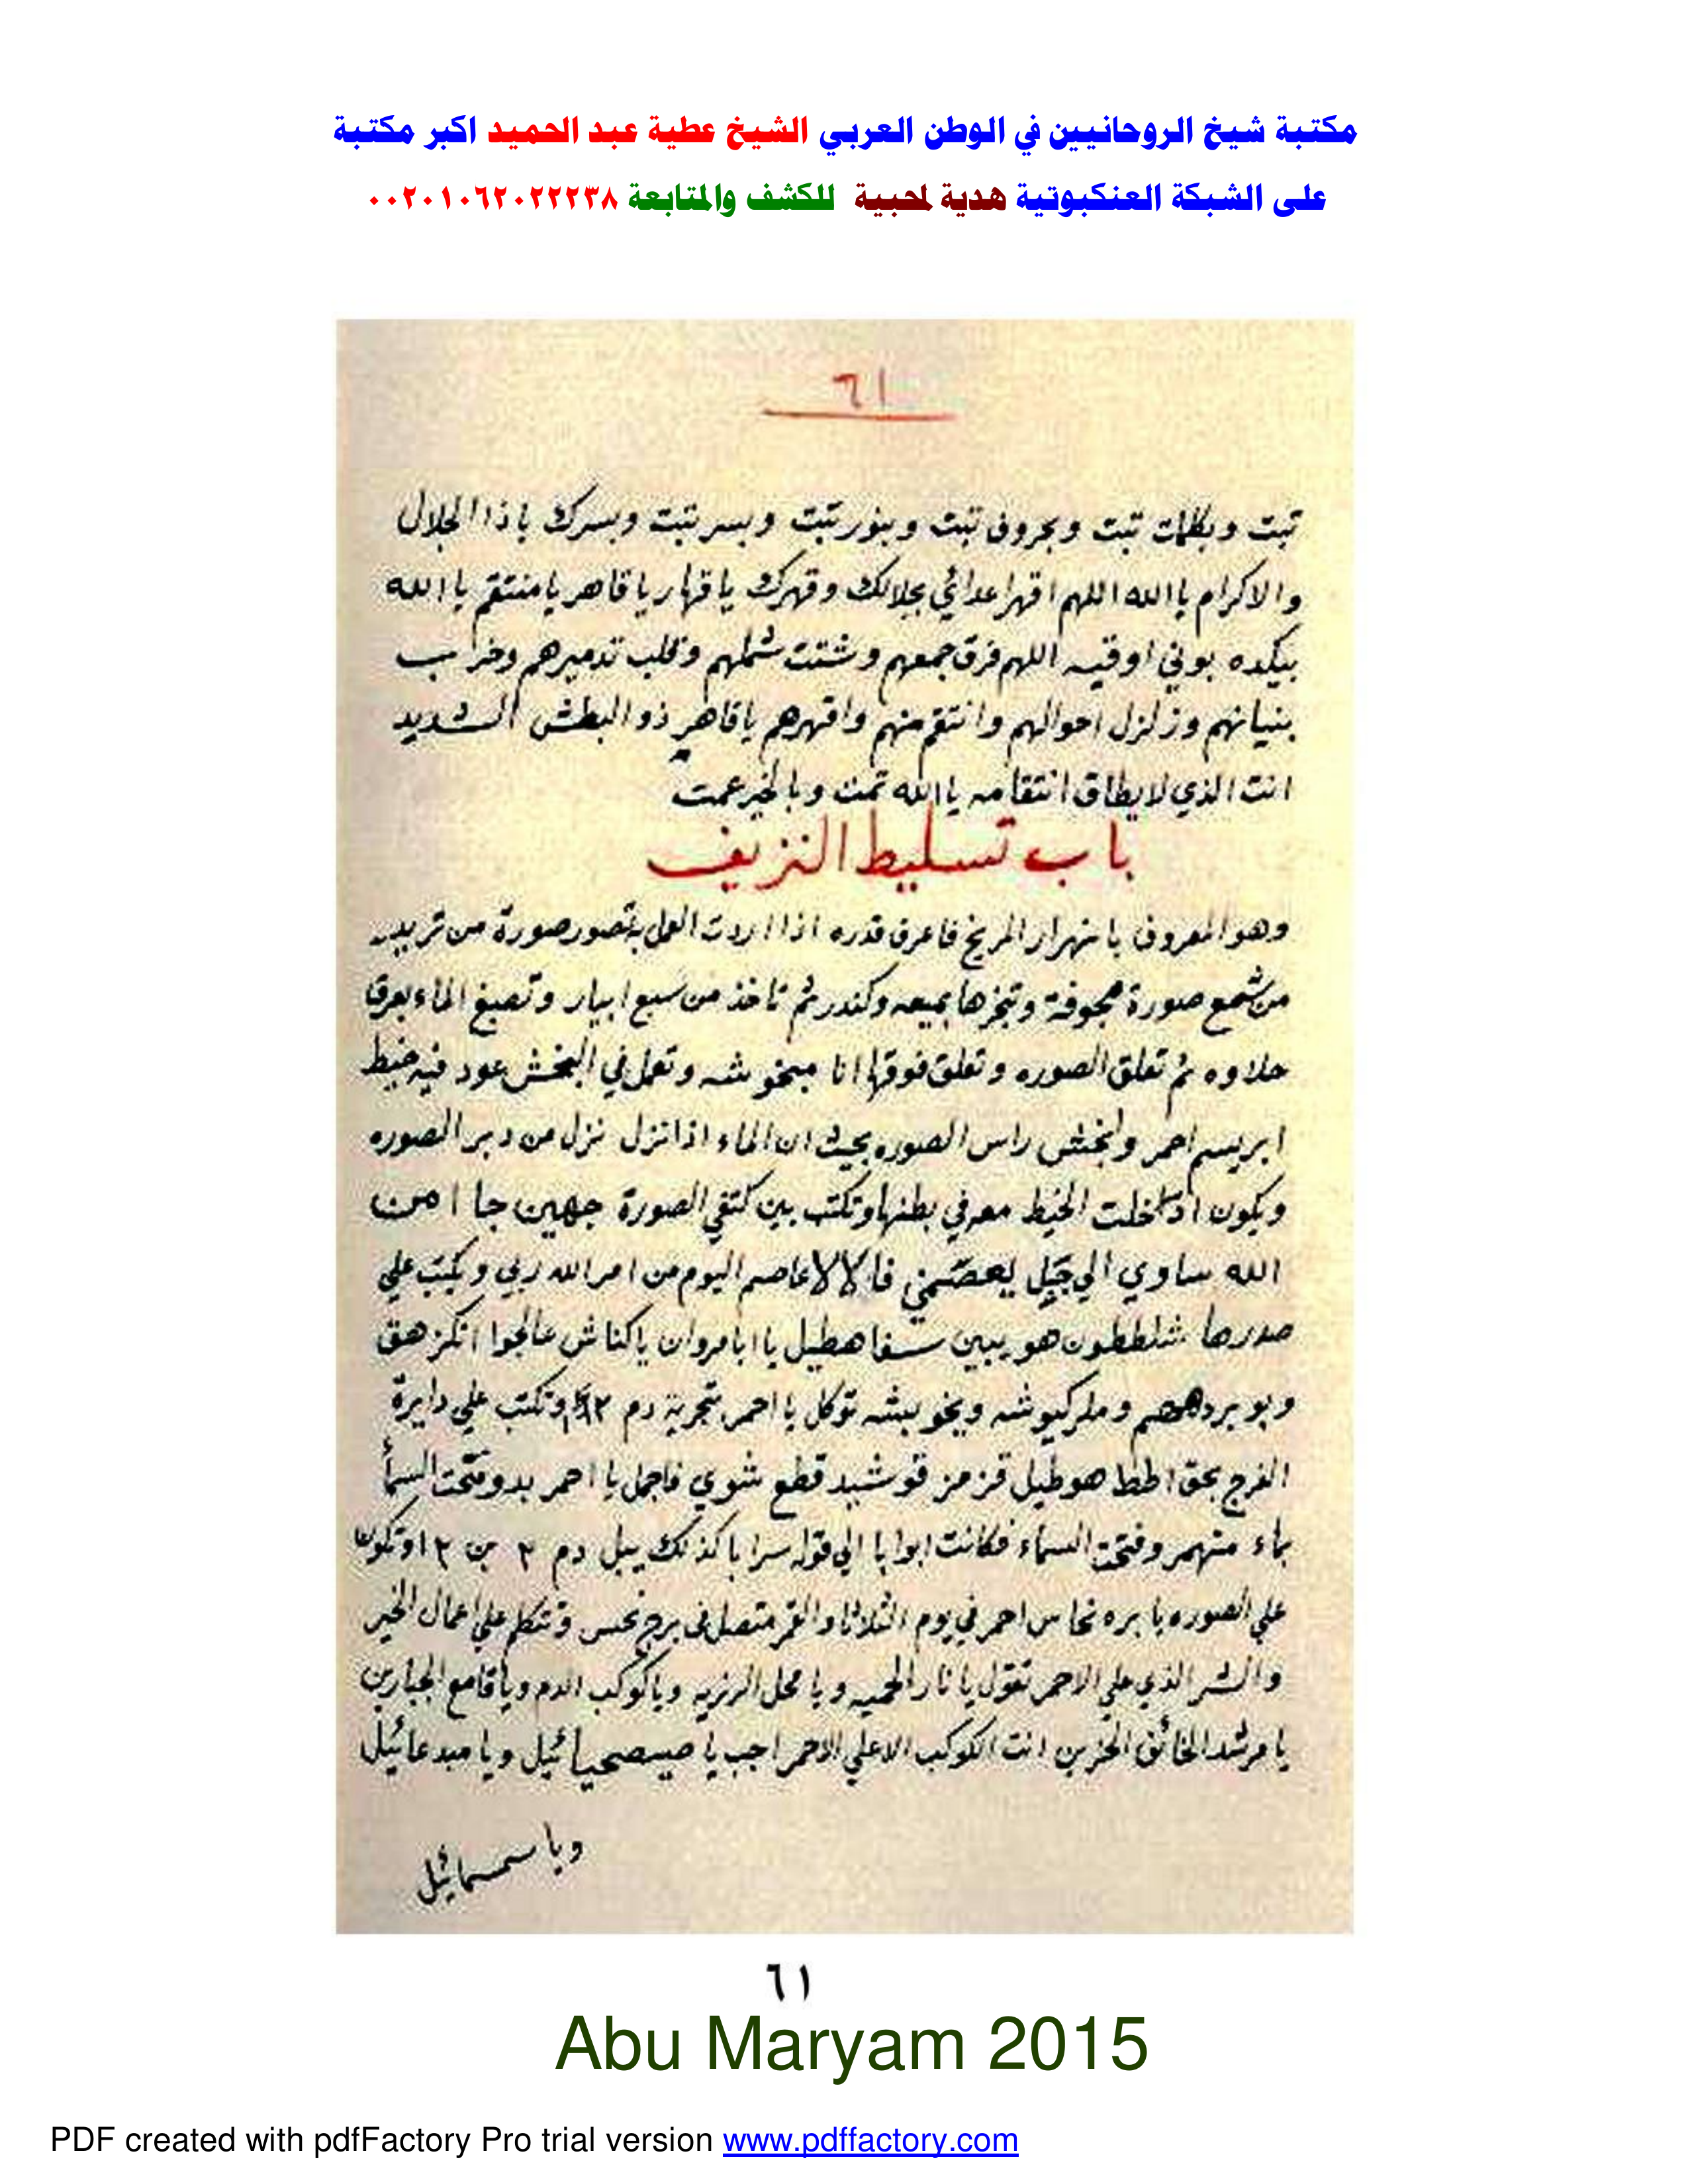 مكتبة شيخ الروحانيين في الوطن العربي الشيخ عطية عبد الحميد اكبر مكتبة
على الشبكة العنكبوتية هدية لمحبية للكشف والمتابعة ٠٠٢٠١٠٦٢٠٢٢٢٣٨
٦١
تبت وبكلمات تبت وبحروف تبت وبنور تبت وبسر تبت وبسرك ياذا الجلال
والاكرام يا الله اللهم اقهر اعدائي بجلالك وقهرك يا قهار يا قاهر يا منتقم يا الله
بيكده بوني اوقيه اللهم فرق جمعهم وشتت شملهم وقلب تدميرهم وخراب
بنيانهم وزلزل احوالهم وانتقم منهم واقهرهم ياقاهر ذو البطش الشديد
انت الذي لا يطاق انتقامه يا الله تمت وبالخير عمت
باب تسليط النزيف
وهو المعروف بانهرار المريخ فاعرف قدره اذا اردت العمل به تصور صورة من تريد
من شمع صورة مجوفة وتبخرها بميعه وكندر ثم تاخذ من سبع ابيار وتصبغ الماء بعرق
حلاوه ثم تعلق الصوره وتعلق فوقها انا مبخوشه وتعمل في البخش عود فيه خيط
ابريسم احمر وابخش راس الصوره بحيث ان الماء اذا نزل نزل من دبر الصوره
ويكون ادخلت الخيط معه في بطنها وتكتب بين كتفي الصورة جهين جا امن
الله ساوي الي جبل يعصمني قال لا عاصم اليوم من امر الله ربي ويكتب علي
صدرها شلططون هو يبين سفاهطيل يا ابا مروان ياكناش عالجوا انكز هق
وبو بردههم وملركيوشه ويخوبيشه توكل يا احمر بتجرية دم وتكتب علي دايرة
الفرج بحق اطط هوطيل قزمز قوشيد قطع شوي فاجمل يا احمر بدو فتحت السما
بماء منهمر وفتحت السماء فكانت ابوابا الي قوله سرابا كذلك يبل دم ٢ بن ٢ او تكون
علي الصوره بابره نحاس احمر في يوم الثلاثا والقمر متصل في برج نحس وتتكلم علي اعمال الخير
والشر الذي علي الاحمر تقول يا نار الحميه ويا محل الرزيه وياكوكب الدم ويا قامع الجبارين
يا مرشد الخائف الحزين انت الكوكب الاعلي الاحمر اجب يا صيصحيائيل ويا ميدعائيل
ويا سمسمائيل
٦١
Abu Maryam 2015
PDF created with pdfFactory Pro trial version www.pdffactory.com